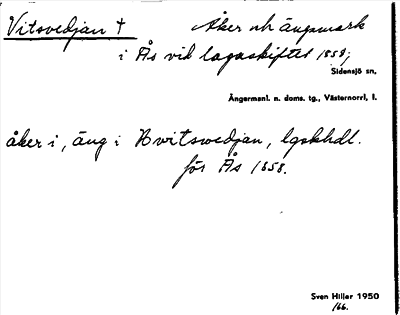 Vitsvedjan † Åker och ängsmark
i Ås vid lagaskiftet 1858;
Sidensjö sn,
Ångermanl. n. doms. tg., Västernorrl, l.
åker i, äng i Hvitswedjan, lgskhdl.
för Ås 1858.
Sven Hiller 1950
/66.